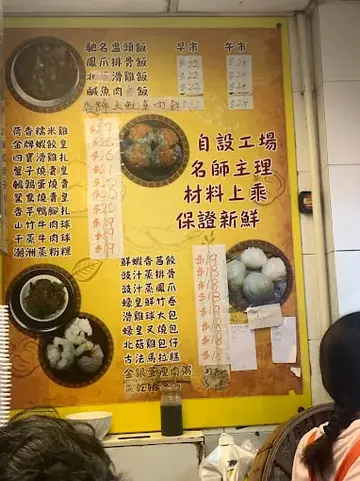 馳名盅頭飯 早市 午市
鳳爪排骨飯 $22 $24
北菇滑雞飯 $22 $24
鹹魚肉餅飯 $22 $24
荷香糯米雞 $27
金牌蝦餃皇 $26
四寶滑雞札
蟹子燒賣皇 $21
鵪鶉蛋燒賣
鴛鴦燒賣皇
香芋鴨腳札 $20
山竹牛肉球 $19
干蒸牛肉球 $19
潮洲蒸粉粿 $19
自設工場
名師主理
材料上乘
保證新鮮
鮮蝦香茜餃 $19
豉汁蒸排骨 $18
豉汁蒸鳳爪 $18
蠔皇鮮竹卷 $18
滑雞球大包 $19
蠔皇叉燒包 $18
北菇雞包仔 $18
古法馬拉糕 $18